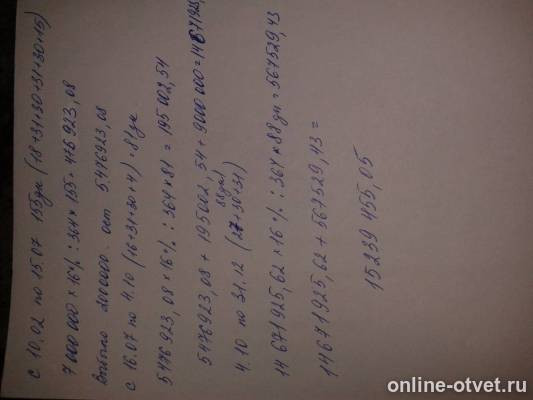 с 10.02 по 15.07 155 дн (18+31+30+31+30+15)
7 000 000 × 16% : 364 × 155 = 476 923,08
выбыло 2000000 ост 5476923,08
с 16.07 по 4.10 (16+31+30+4) = 81 дн
5 476 923,08 × 16% : 364 × 81 = 195 002,54
5476923,08 + 195002,54 + 9000 000 = 14671925,
88 дн
4.10 по 31.12 (27+30+31)
14 671 925,62 × 16% : 364 × 88 дн = 567 529,43
14671925,62 + 567529,43 =
15 239 455,05
online-otvet.ru